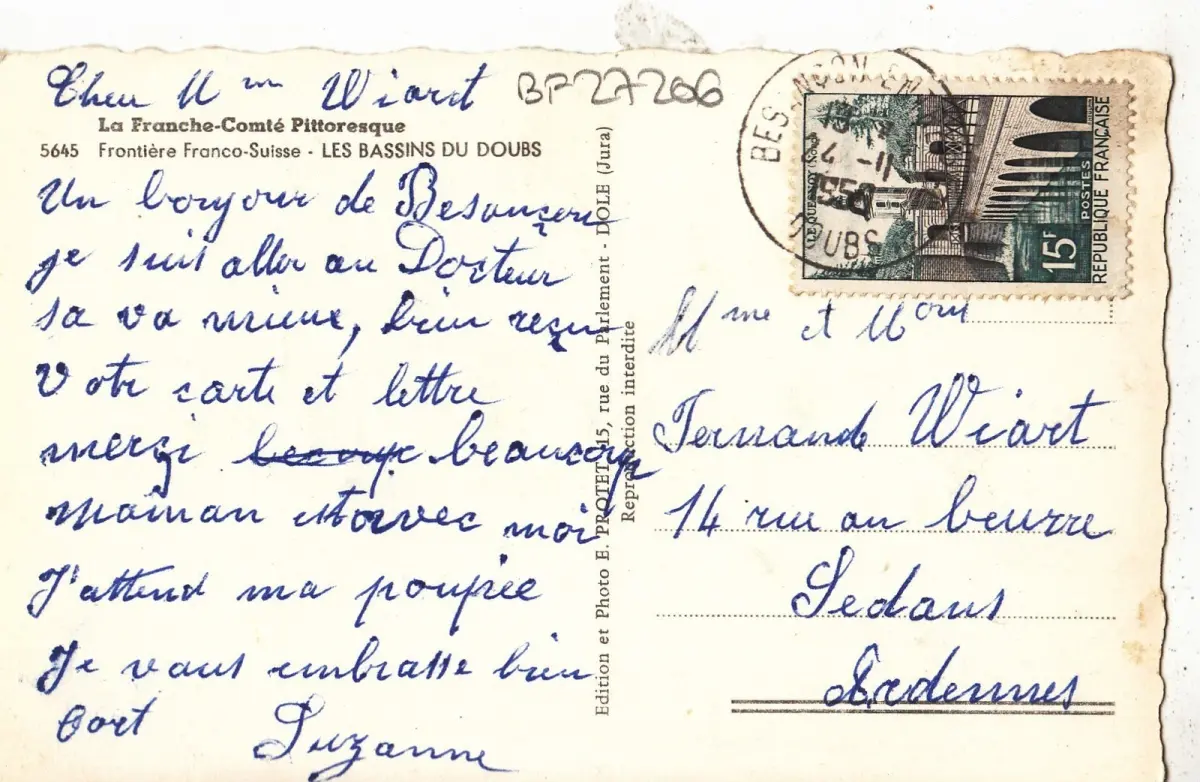 Cheu Mme Wiart
BF27206
La Franche-Comté Pittoresque
5645 Frontière Franco-Suisse - LES BASSINS DU DOUBS
Un bonjour de Besançon
je suis aller au Docteur
sa va mieux, bien reçu
Votr carte et lettre
merçi beaucoup
maman et avec moi
J'attend ma poupée
Je vous embrasse bien
Fort Suzanne
Edition et Photo E. PROTET, 15, rue du Parlement - DOLE (Jura)
Reproduction interdite
BESANCON
DOUBS
15F
POSTES
REPUBLIQUE FRANÇAISE
Mme et
Fernand Wiart
14 rue au beurre
Sedans
Ardennes